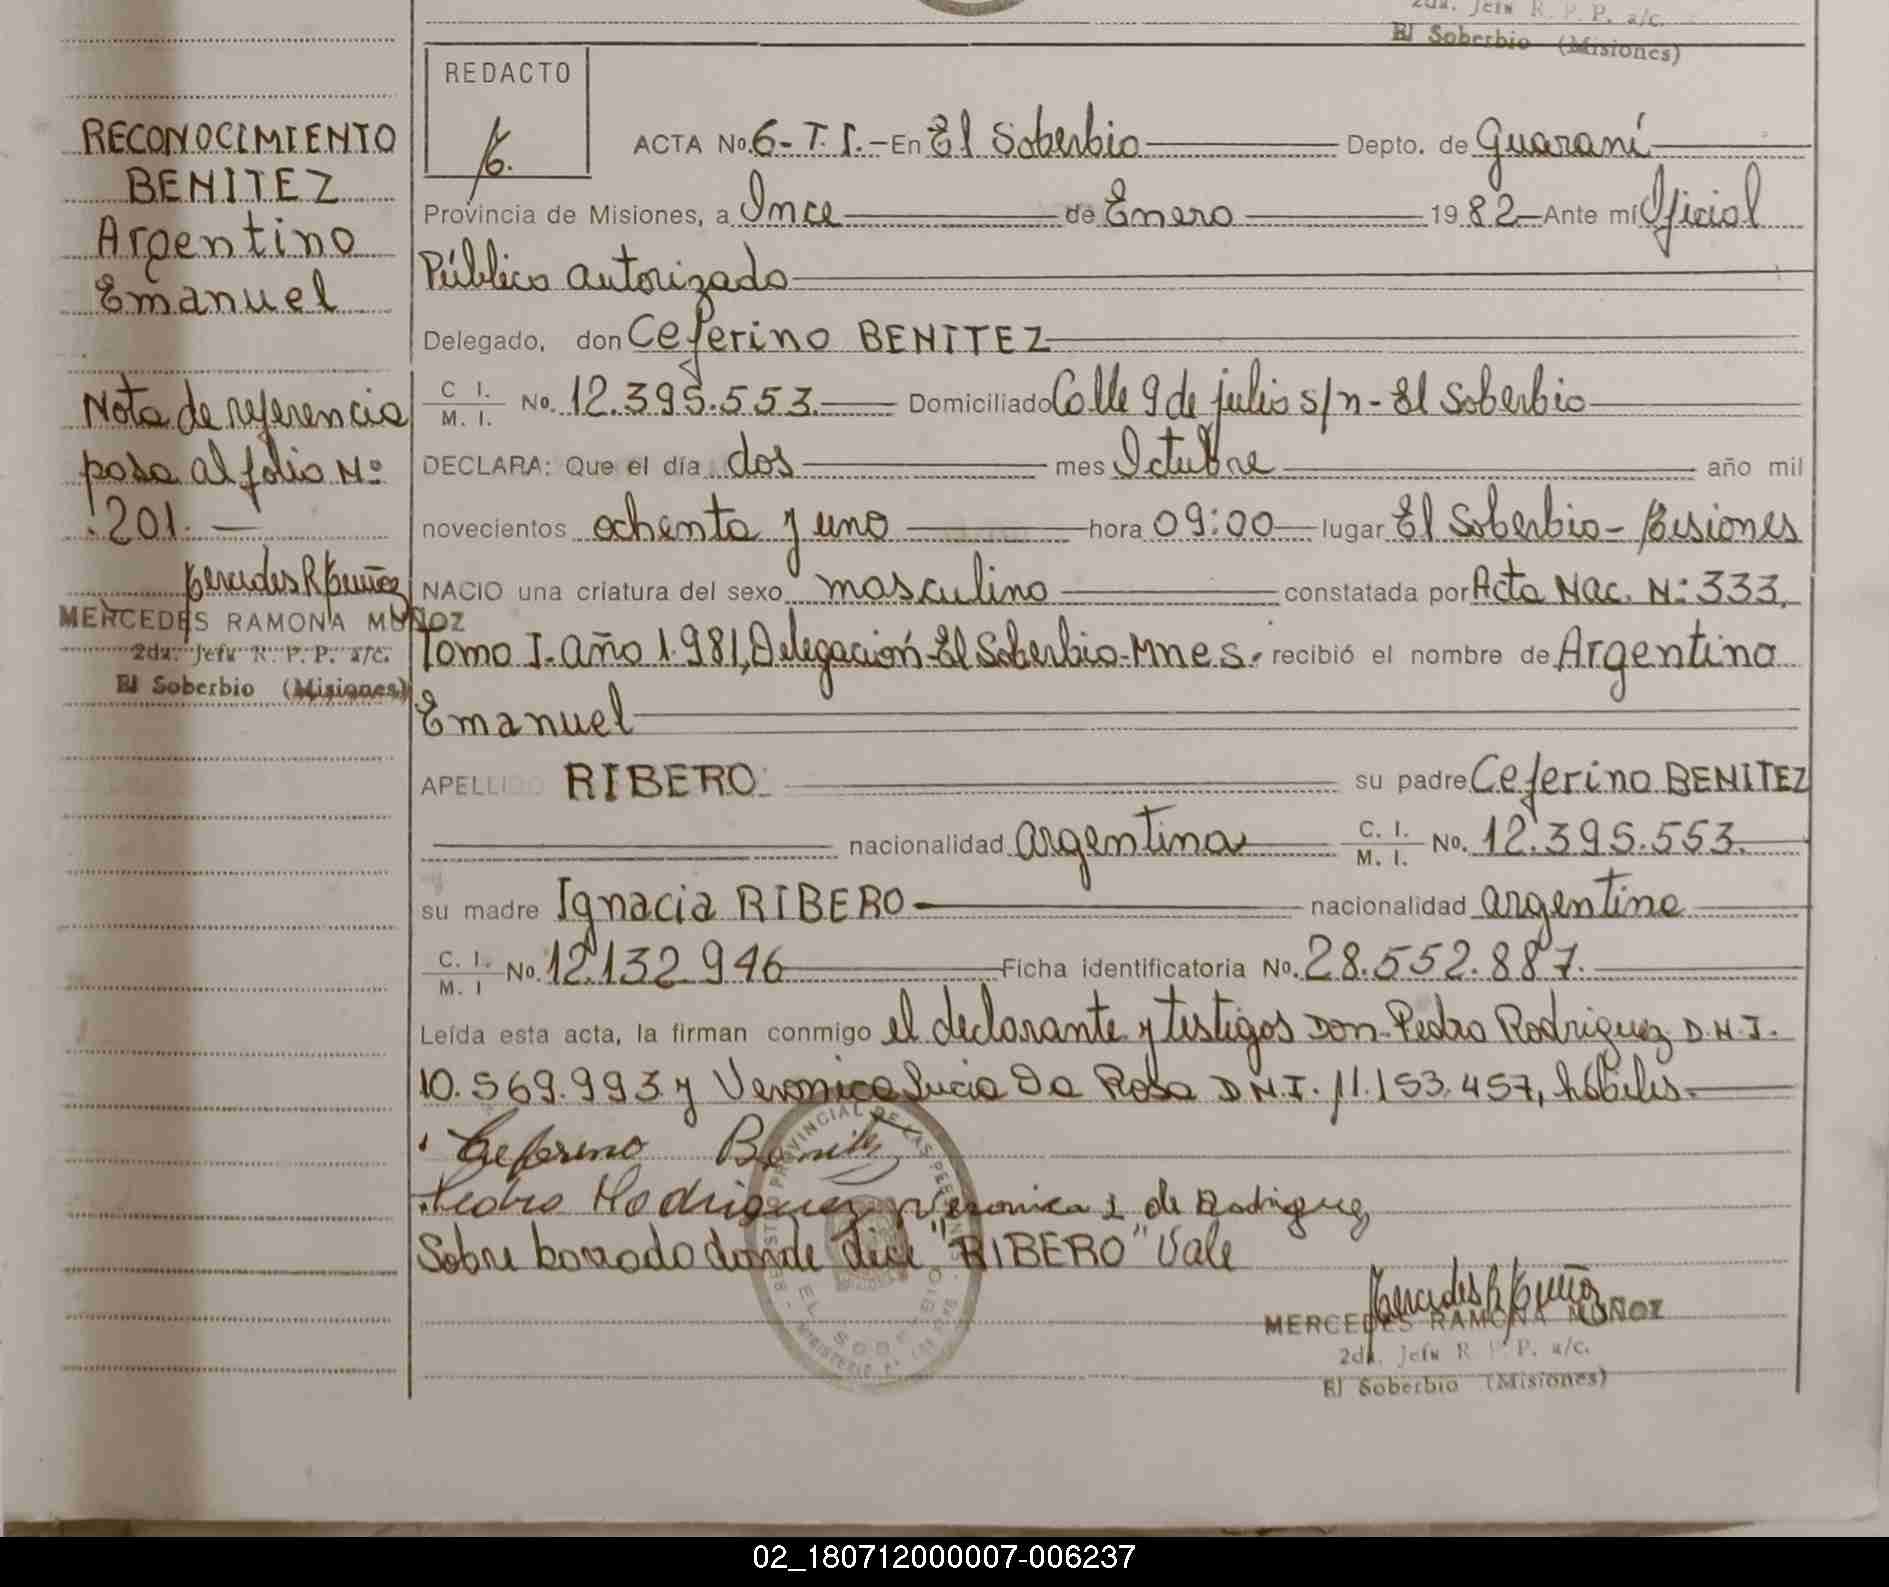 2da. Jefa R. P. P. a/c.
El Soberbio (Misiones)
REDACTO
ACTA No. 6- T. I. - En El Soberbio Depto. de Guaraní
Provincia de Misiones, a Once de Enero 1982 Ante mí Oficial
Público autorizado
Delegado, don Ceferino BENITEZ
C I. M. I. No. 12.395.553. Domiciliado Calle 9 de julio s/n - El Soberbio
DECLARA: Que el día dos mes Octubre año mil
novecientos ochenta y uno hora 09:00 lugar El Soberbio - Misiones
NACIO una criatura del sexo masculino constatada por Acta Nac. Nº 333,
Tomo I. año 1.981, Delegación-El Soberbio-Mnes. recibió el nombre de Argentino
Emanuel
APELLIDO RIBERO su padre Ceferino BENITEZ
nacionalidad argentina C. I. M. I. No. 12.395.553.
su madre Ignacia RIBERO nacionalidad argentina
C. I. M. I No. 12.132 946 Ficha identificatoria No. 28.552.887.
Leída esta acta, la firman conmigo el declarante y testigos Don-Pedro Rodriguez D.N.I.
10.569.993 y Veronica Lucia Da Rosa D.N.I. 11.153.457, hábiles.
Ceferino Benitez
Pedro Rodriguez Veronica L de Rodriguez
Sobre borrado donde dice "RIBERO" Vale
MERCEDES RAMONA MUÑOZ
2da. Jefa R. P. P. a/c.
El Soberbio (Misiones)
RECONOCIMIENTO
BENITEZ
Argentino
Emanuel
Nota de referencia
pasa al folio Nº
201.
Mercedes R Muñoz
MERCEDES RAMONA MUÑOZ
2da. Jefa R. P. P. a/c.
El Soberbio (Misiones)
02_180712000007-006237